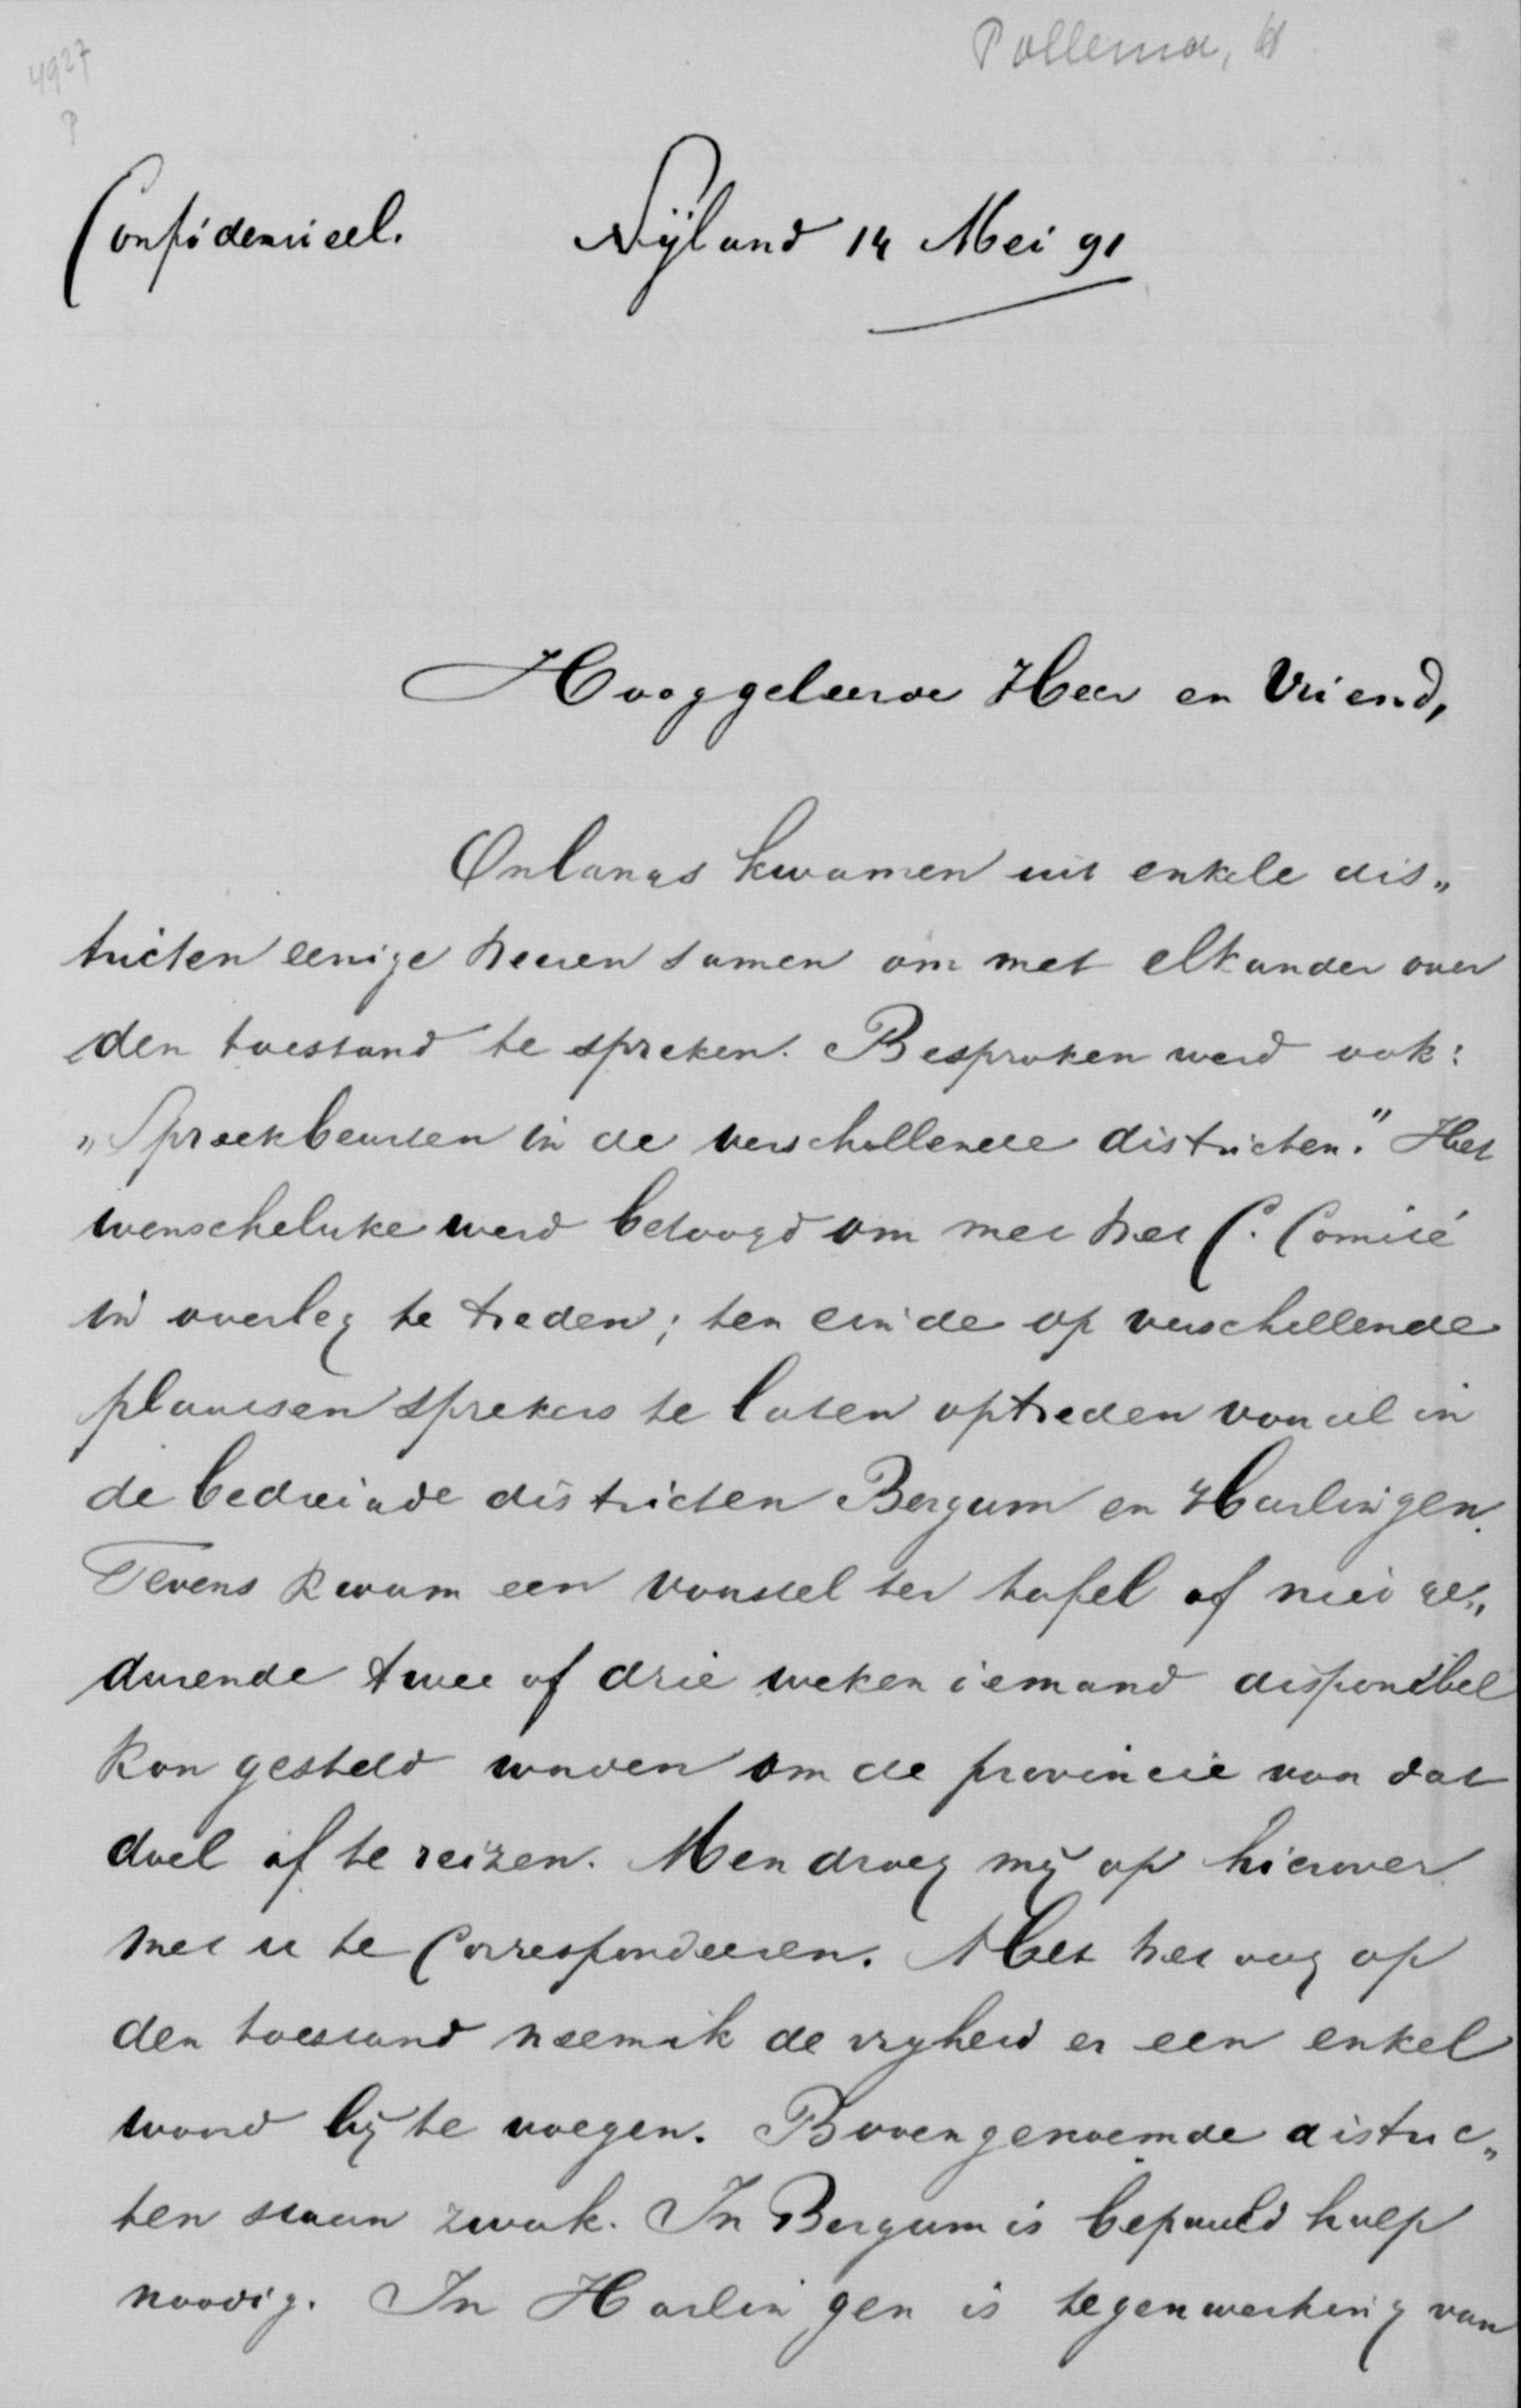 Pollema, H
4927
P
Confidentieel. Nijland 14 Mei 91
Hooggeleerde Heer en Vriend,
Onlangs kwamen uit enkele dis„
tricten eenige heeren samen om met elkander over
den toestand te spreken. Besproken werd ook:
„Spreekbeurten in de verschillende districten." Het
wenschelijke werd betoogd om met het C. Comité
in overleg te treden; ten einde op verschillende
plaatsen sprekers te laten optreden vooral in
de bedreigde districten Bergum en Harlingen.
Tevens kwam een voorstel ter tafel of niet ge„
durende twee of drie weken iemand disponibel
kon gesteld worden om de provincie van dat
doel af te reizen. Men droeg mij op hierover
met u te Correspondeeren. Met het oog op
den toestand neem ik de vrijheid er een enkel
woord bij te voegen. Bovengenoemde distric„
ten staan zwak. In Bergum is bepaald hulp
noodig. In Harlingen is tegenwerking van